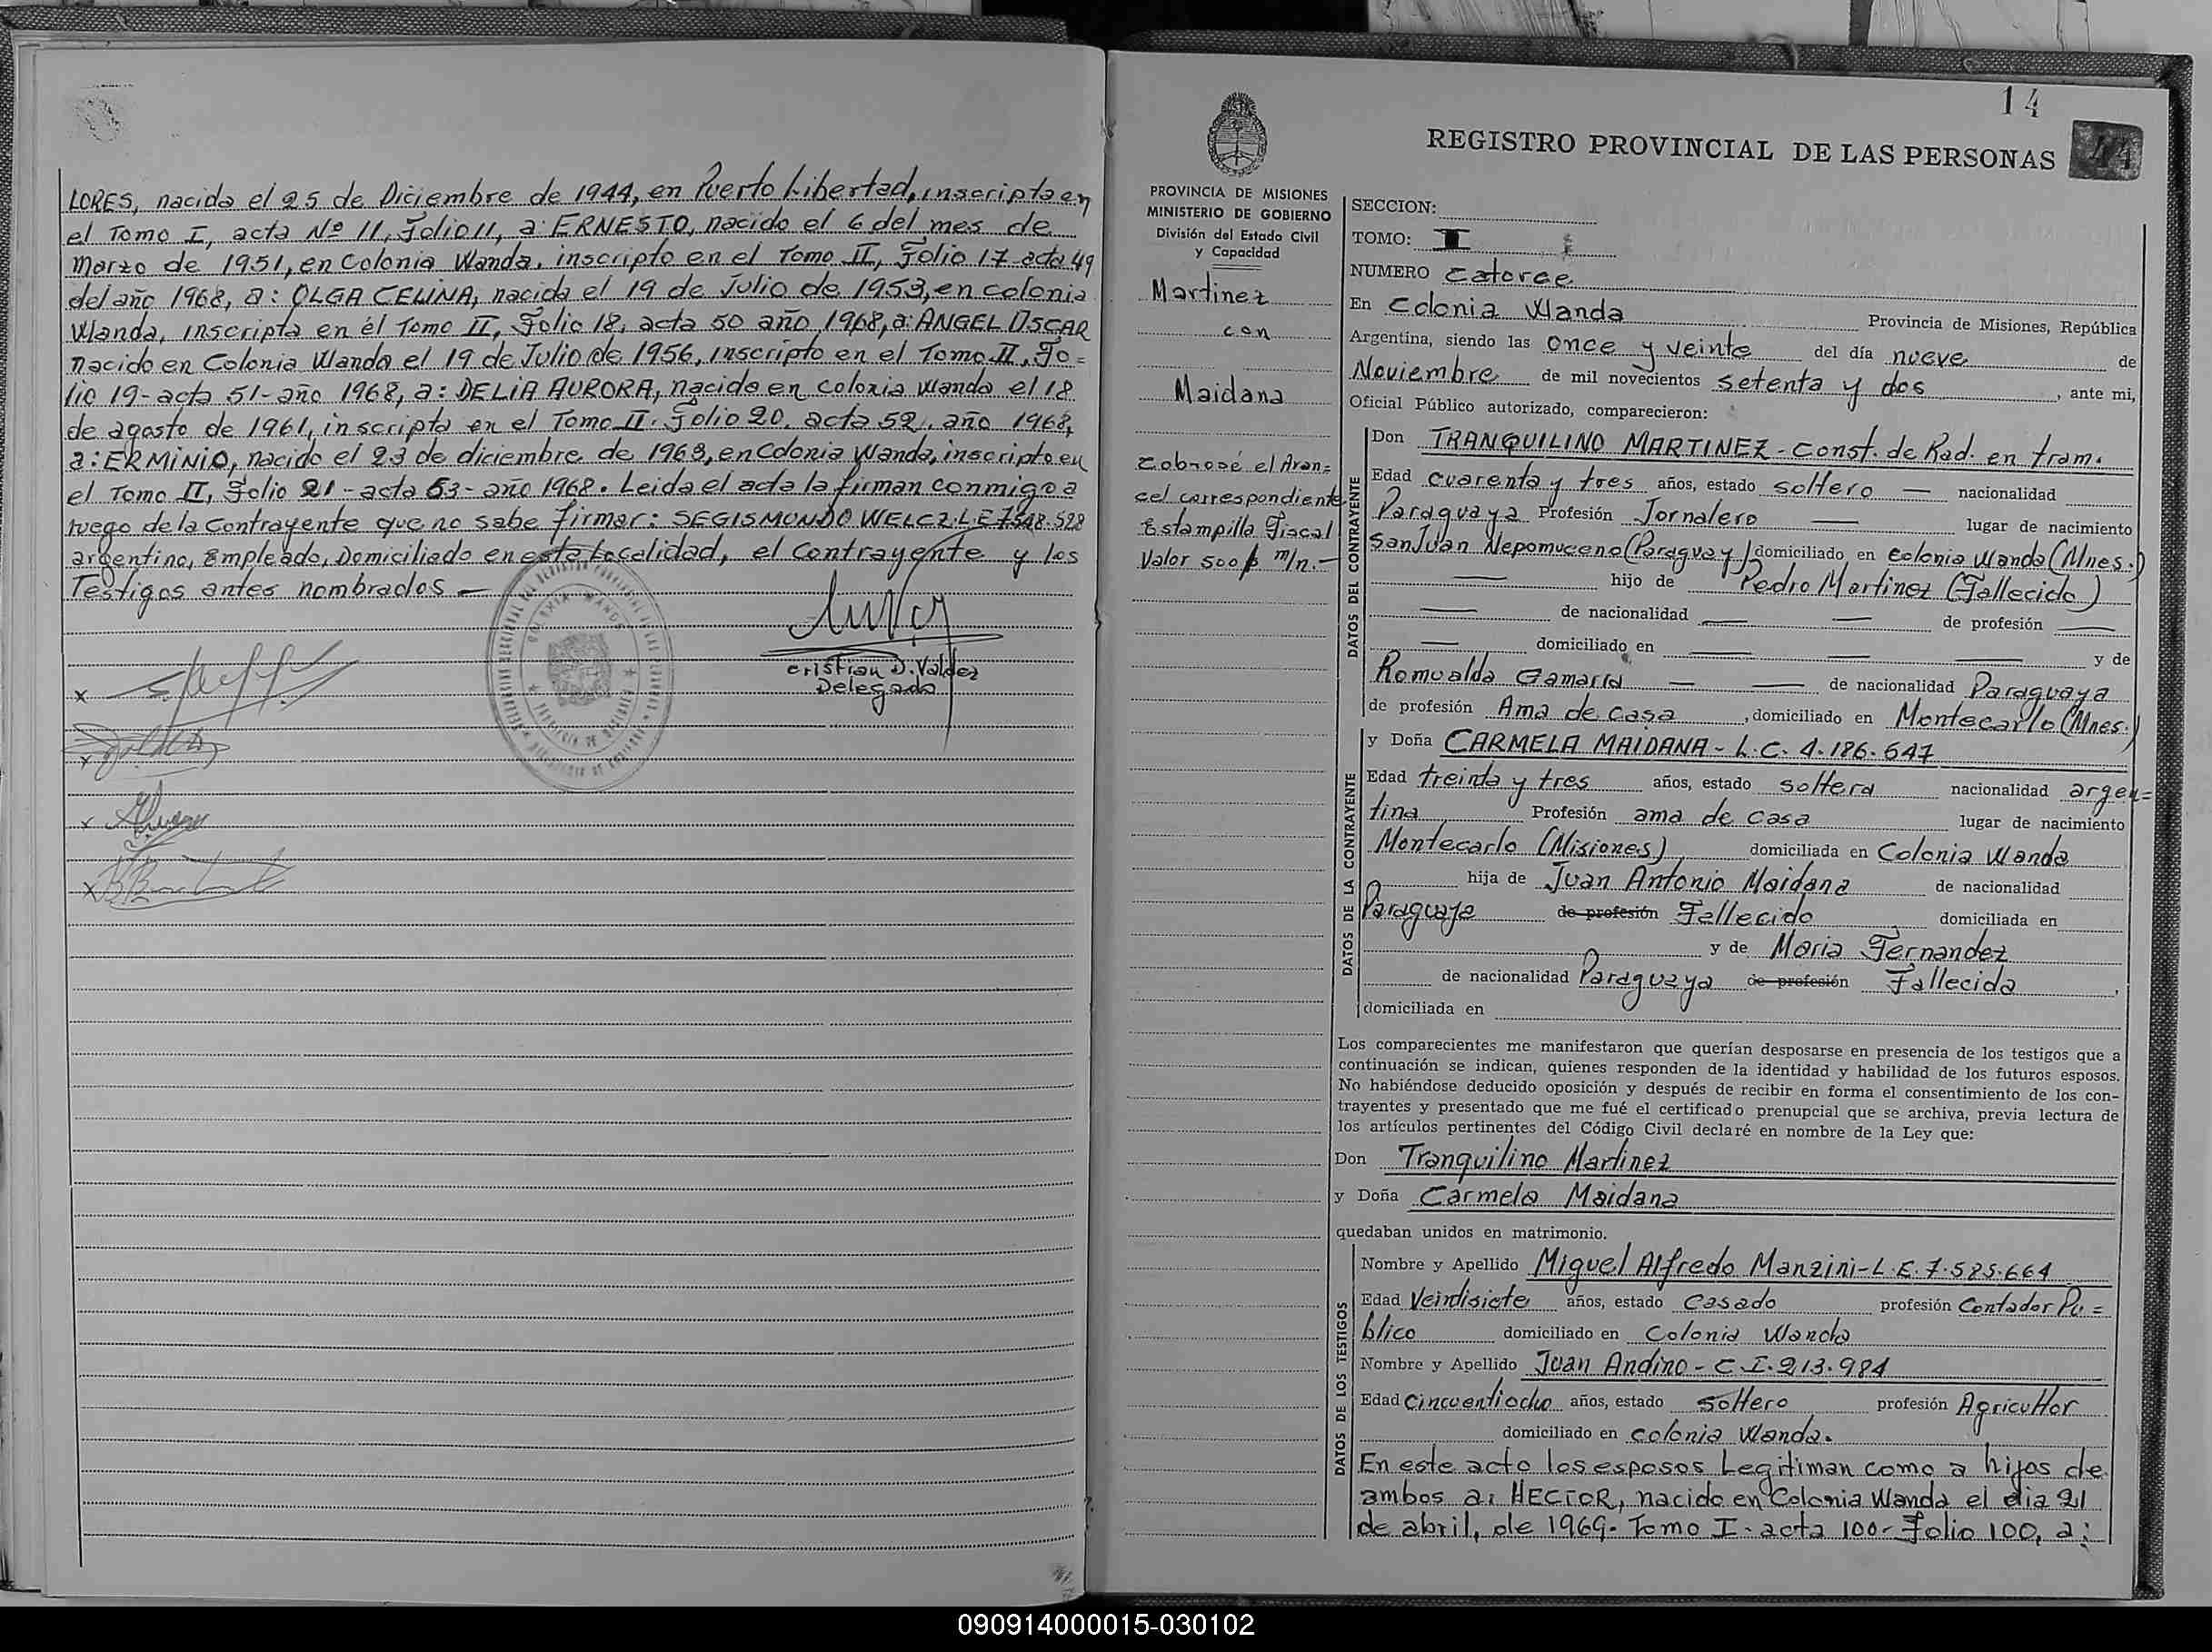 LORES, nacida el 25 de Diciembre de 1944, en Puerto Libertad, inscripta en
el Tomo I, acta Nº 11, Folio 11, a: ERNESTO, nacido el 6 del mes de
Marzo de 1951, en Colonia Wanda, inscripto en el Tomo II, Folio 17 acta 49
del año 1968, a: OLGA CELINA, nacida el 19 de Julio de 1953, en colonia
Wanda, inscripta en él Tomo II, Folio 18, acta 50 año 1968, a: ANGEL OSCAR
nacido en Colonia Wanda el 19 de Julio de 1956, inscripto en el Tomo II, Fo=
lio 19- acta 51- año 1968, a: DELIA AURORA, nacida en colonia wanda el 18
de agosto de 1961, inscripta en el Tomo II. Folio 20. acta 52. año 1968,
a: ERMINIO, nacido el 23 de diciembre de 1963, en Colonia Wanda, inscripto en
el Tomo II, Folio 21 - acta 53- año 1968. Leida el acta la firman conmigo a
ruego de la Contrayente que no sabe firmar: SEGISMUNDO WELCZ. L.E 7.548.528
argentino, Empleado, Domiciliado en esta Localidad, el Contrayente y los
Testigos antes nombrados —
Cristian D. Valdez
Delegado
14
REGISTRO PROVINCIAL DE LAS PERSONAS
44
PROVINCIA DE MISIONES
MINISTERIO DE GOBIERNO
División del Estado Civil
y Capacidad
Martinez
con
Maidana
Cobrosé el Aran=
cel correspondiente
Estampilla Fiscal
Valor 500 $ m/n.—
SECCION:
TOMO: I
NUMERO catorce
En Colonia Wanda Provincia de Misiones, República
Argentina, siendo las once y veinte del día nueve de
Noviembre de mil novecientos setenta y dos, ante mi,
Oficial Público autorizado, comparecieron:
DATOS DEL CONTRAYENTE
Don TRANQUILINO MARTINEZ - Const. de Rad. en tram.
Edad cuarenta y tres años, estado soltero — nacionalidad
Paraguaya Profesión Jornalero — lugar de nacimiento
San Juan Nepomuceno (Paraguay) domiciliado en colonia Wanda (Mnes.)
— hijo de Pedro Martinez (Fallecido)
— de nacionalidad — — de profesión —
— domiciliado en — — — y de
Romualda Gamarra — — de nacionalidad Paraguaya
de profesión Ama de casa, domiciliado en Montecarlo (Mnes.)
DATOS DE LA CONTRAYENTE
y Doña CARMELA MAIDANA - L.C. 4.186.647
Edad treinta y tres años, estado soltera nacionalidad argen=
tina Profesión ama de casa lugar de nacimiento
Montecarlo (Misiones) domiciliada en Colonia Wanda
hija de Juan Antonio Maidana de nacionalidad
Paraguaya de profesión Fallecido domiciliada en
y de Maria Fernandez
de nacionalidad Paraguaya de profesión Fallecida,
domiciliada en
Los comparecientes me manifestaron que querían desposarse en presencia de los testigos que a
continuación se indican, quienes responden de la identidad y habilidad de los futuros esposos.
No habiéndose deducido oposición y después de recibir en forma el consentimiento de los con-
trayentes y presentado que me fué el certificado prenupcial que se archiva, previa lectura de
los artículos pertinentes del Código Civil declaré en nombre de la Ley que:
Don Tranquilino Martinez
y Doña Carmela Maidana
quedaban unidos en matrimonio.
DATOS DE LOS TESTIGOS
Nombre y Apellido Miguel Alfredo Manzini - L.E. 7.585.664
Edad Veintisiete años, estado Casado profesión Contador Pú=
blico domiciliado en Colonia Wanda
Nombre y Apellido Juan Andino - C.I. 213.984
Edad Cincuentiocho años, estado soltero profesión Agricultor
domiciliado en colonia Wanda.
En este acto los esposos Legitiman como a hijos de
ambos a: HECTOR, nacido en Colonia Wanda el dia 21
de abril, de 1969- Tomo I- acta 100- Folio 100, a:
090914000015-030102